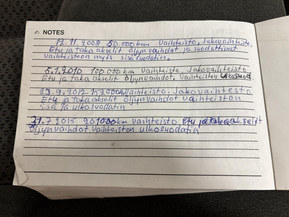 NOTES
12.11.2008 50.000km Vaihteisto, Jakovaihteisto,
Etu ja taka akselit öljynvaihdot ja suodattimet
vaihteiston myös sisäsuodatin.
5.1.2010 100 000 km Vaihteisto, Jakovaihteisto
Etu ja taka akselit öljynvaihdot, Vaihteiston
Vaihteisto, Jakovaihteisto
Etu ja taka akselit öljynvaihdot vaihteiston
sisä ja ulkosuodatin
21.7 2015 201000km vaihteisto, Etu ja taka akselit
öljynvaihdot, Vaihteiston ulkosuodatin